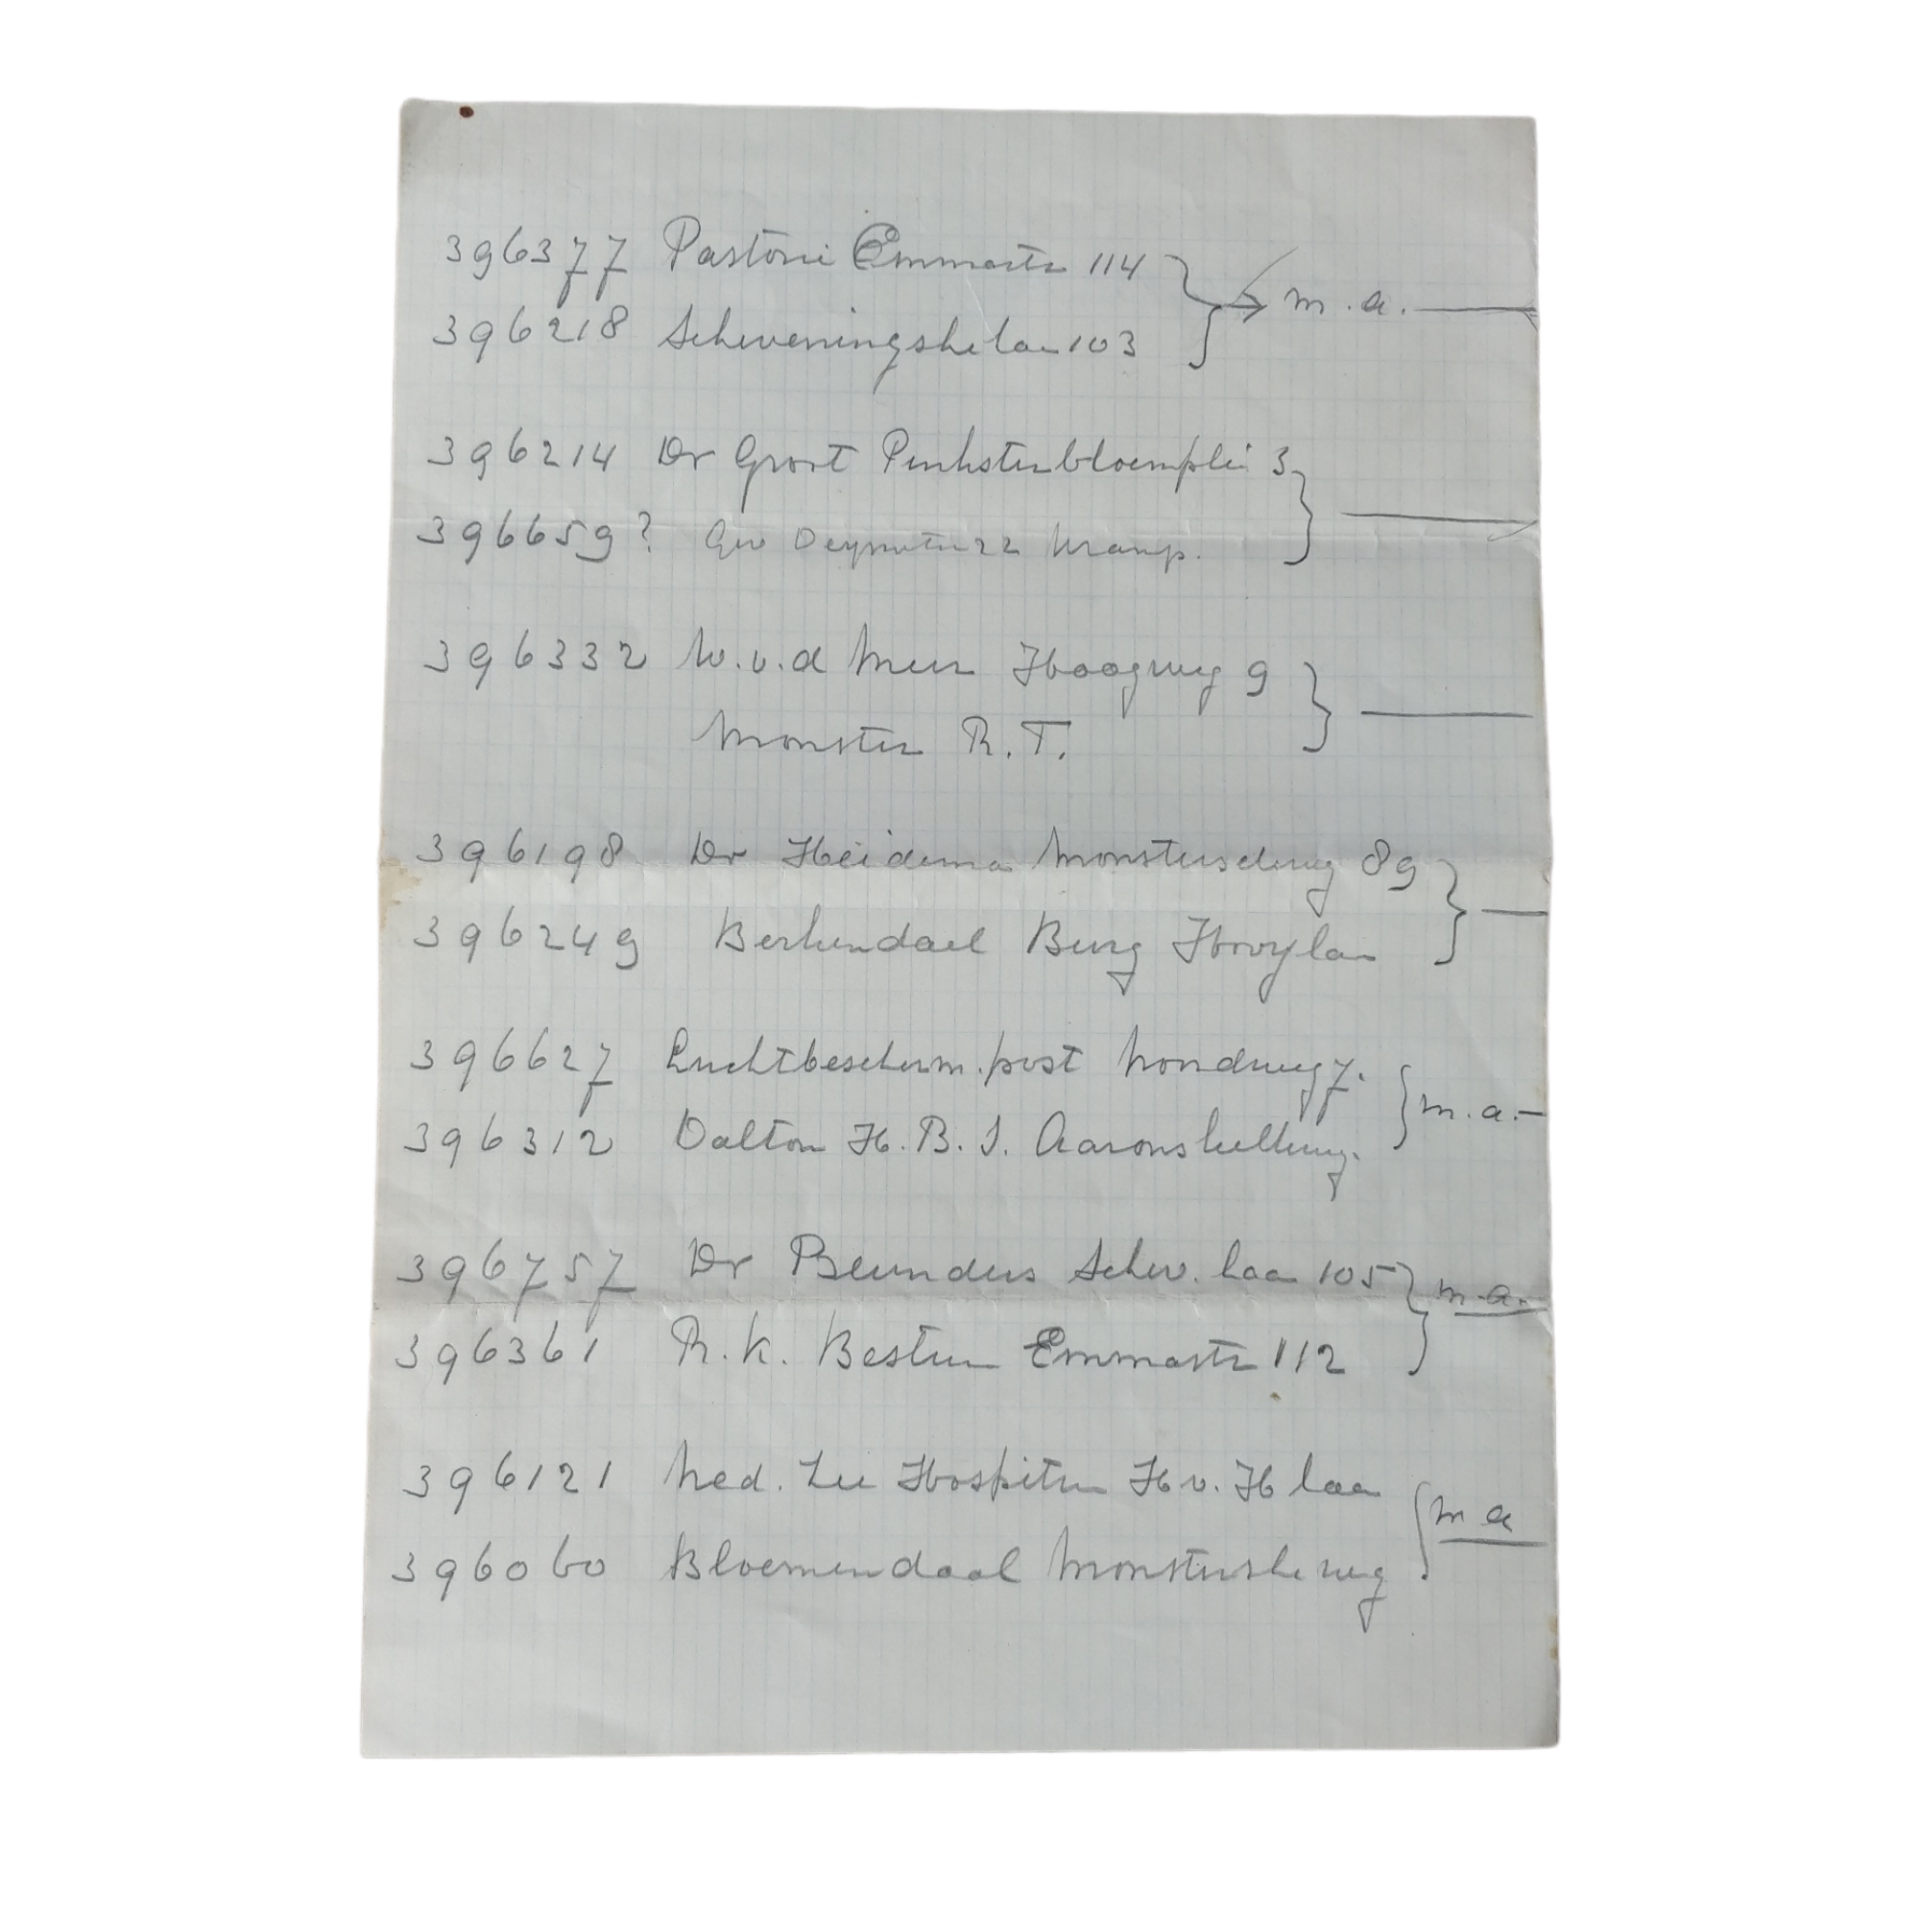 396377 Pastorie Emmastr 114 } → m.a. —
396218 Scheveningschelaan 103
396214 Dr Groot Pinksterbloemplei 3
396659? Gev Deynootstr 22
396332 W.v.d Meer Hoogweg 9
Monster R.T.
396198 Dr Heidema Monsterscheweg 89
396249 Berkendael Burg Hovylaan
396627 Luchtbescherm.post Nondweg 7. } m.a. —
396312 Dalton H.B.S. Aaronskelkweg.
396757 Dr Beunders Schev. laan 105 } m.a.
396361 R.K. Bestuur Emmastr 112
396121 Ned. Zee Hospitium H v. H laan } m a
396060 Bloemendaal Monstersche weg